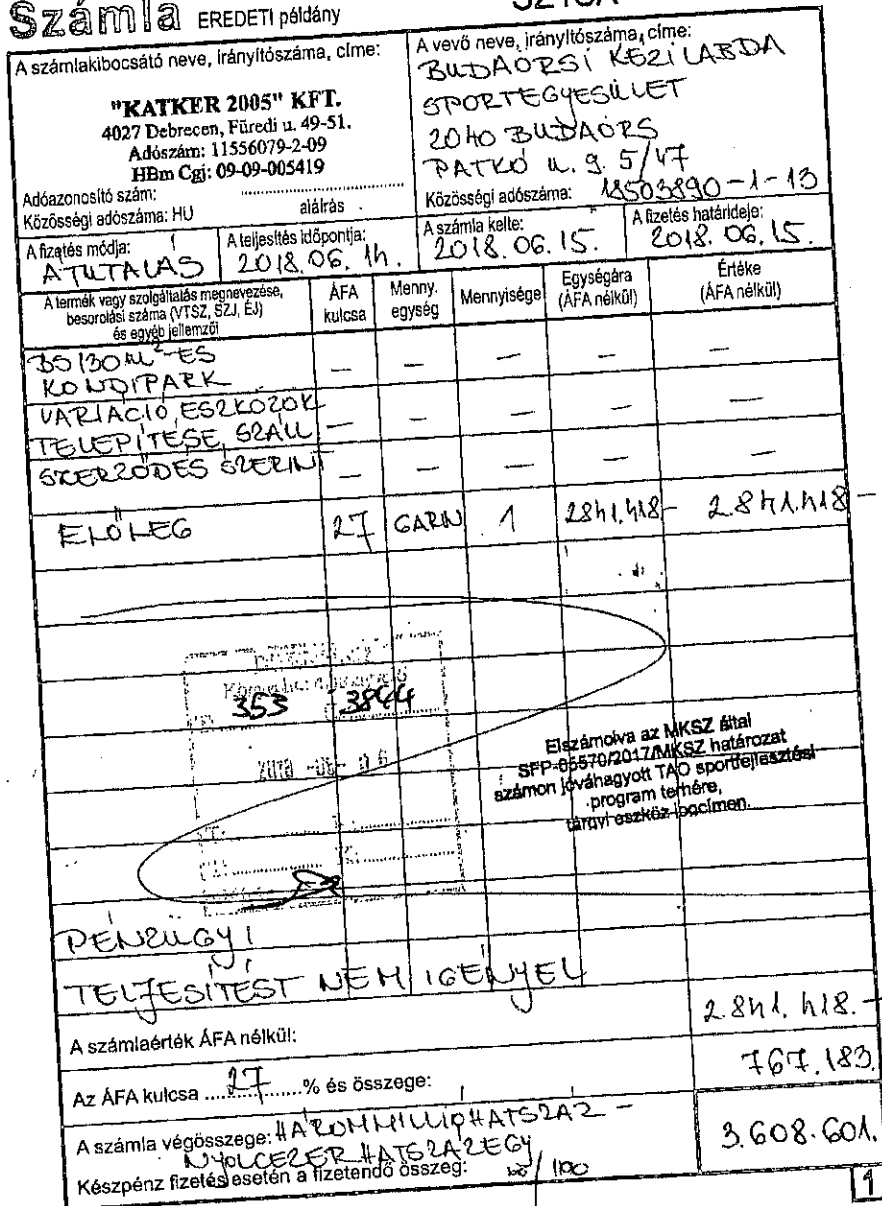 Számla EREDETI példány
A számlakibocsátó neve, irányítószáma, címe:
"KATKER 2005" KFT.
4027 Debrecen, Füredi u. 49-51.
Adószám: 11556079-2-09
HBm Cgj: 09-09-005419
Adóazonosító szám:
Közösségi adószáma: HU
aláírás
A vevő neve, irányítószáma, címe:
BUDAÖRSI KÉZILABDA
SPORTEGYESÜLET
2040 BUDAÖRS
PATKÓ u. 9. 5/47
Közösségi adószáma: 18503890-1-13
A fizetés módja:
ÁTUTALÁS
A teljesítés időpontja:
2018.06.14.
A számla kelte:
2018.06.15.
A fizetés határideje:
2018.06.15.
A termék vagy szolgáltatás megnevezése,
besorolási száma (VTSZ, SZJ, ÉJ)
és egyéb jellemzői
ÁFA kulcsa
Menny. egység
Mennyisége
Egységára (ÁFA nélkül)
Értéke (ÁFA nélkül)
m²-ES
KONDIPARK — — — — —
VARIÁCIÓ, ESZKÖZÖK
TELEPÍTÉSE, SZÁLL — — — — —
SZERZŐDÉS SZERINT — — — — —
ELŐLEG 27 GARN 1 2841.418- 2.841.418-
353 3844
Elszámolva az MKSZ által
SFP-05570/2017/MKSZ határozat
számon jóváhagyott TAO sportfejlesztési
program terhére,
tárgyi eszköz jogcímen.
PÉNZÜGYI
TELJESÍTÉST NEM IGÉNYEL
A számlaérték ÁFA nélkül: 2.841.418.-
Az ÁFA kulcsa 27 % és összege: 767.183.
A számla végösszege: HÁROMMILLIÓHATSZÁZ-
NYOLCEZERHATSZÁZEGY 3.608.601.
Készpénz fizetés esetén a fizetendő összeg: /100
1